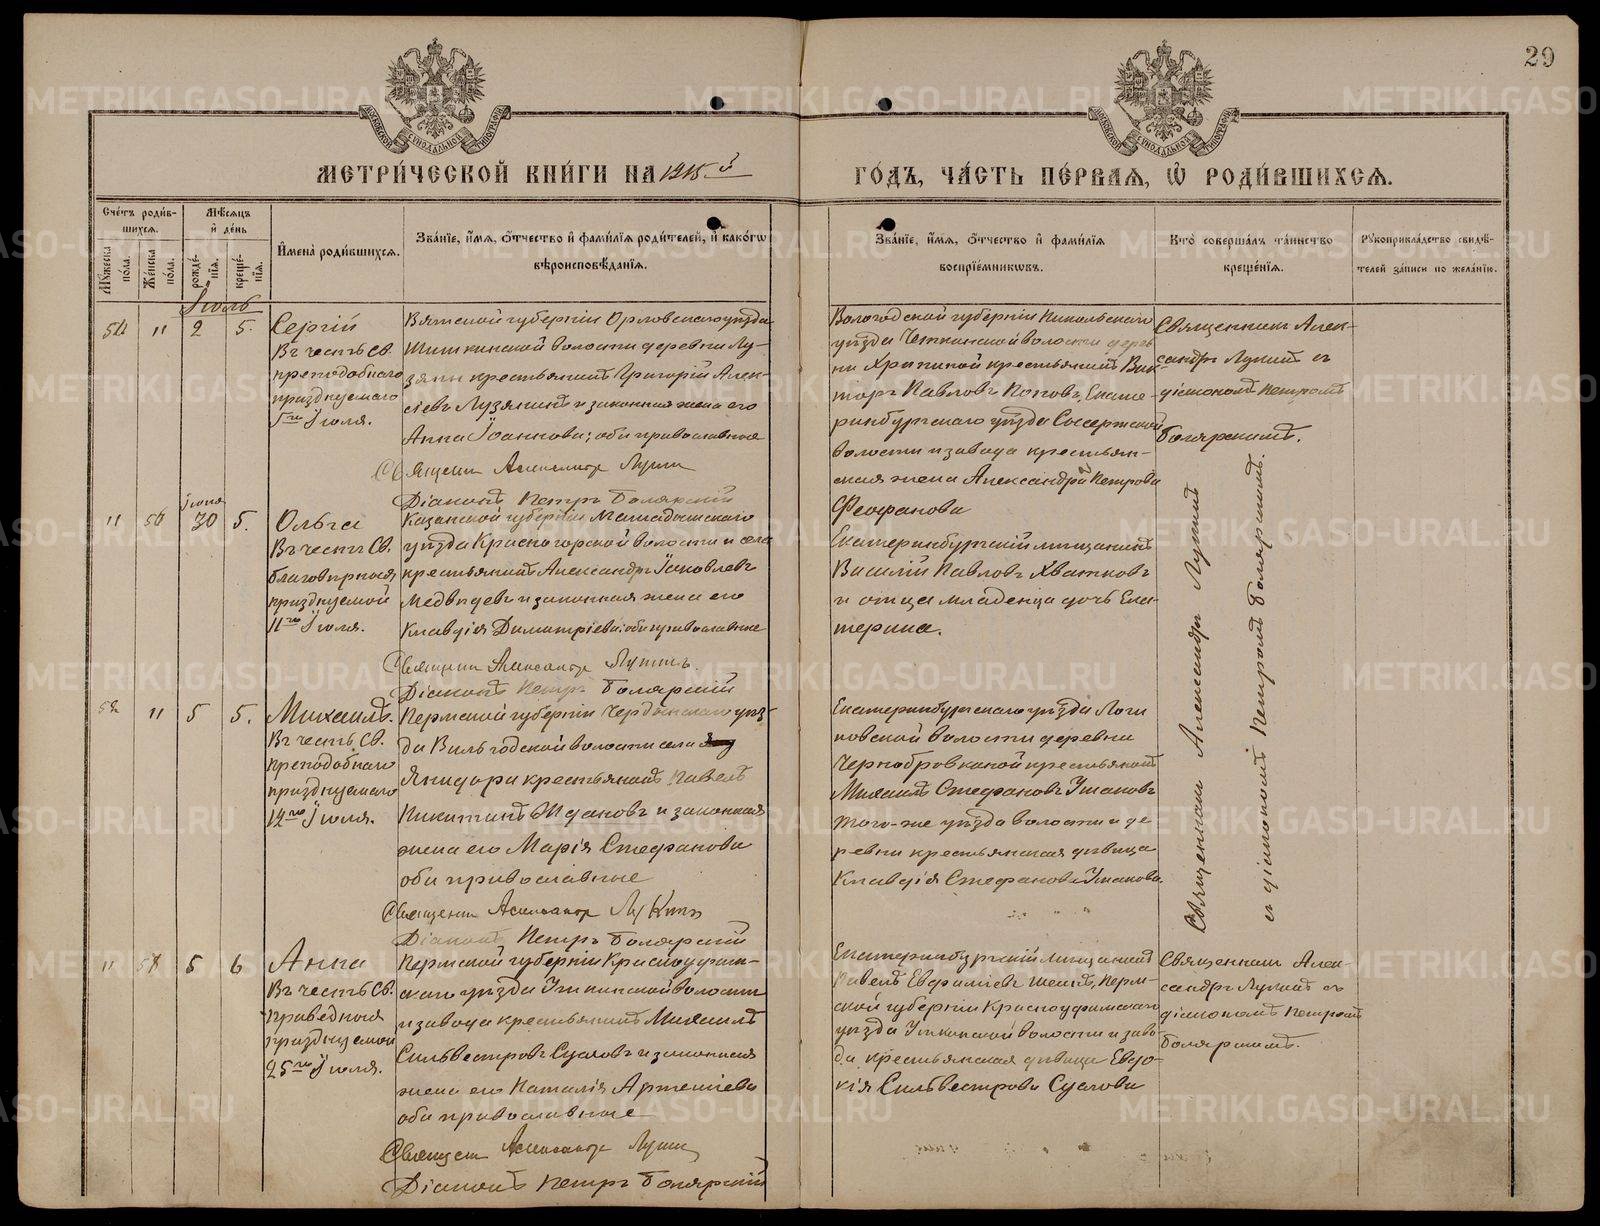 29
МОСКОВСКОЙ СѴНОДАЛЬНОЙ ТѴПОГРАФІИ
МОСКОВСКОЙ СѴНОДАЛЬНОЙ ТѴПОГРАФІИ
МЕТРИ́ЧЕСКОЙ КНИ́ГИ НА 1915й
ГО́ДЪ, ЧА́СТЬ ПЕ́РВАЯ, Ѡ҆ РОДИ́ВШИХСЯ.
Сче́тъ роди́в-
шихся.
Мꙋ́жеска по́ла.
Же́нска по́ла.
Мѣ́сяцъ
и҆ де́нь
рожде́-нїя.
креще́-нїя.
И҆мена̀ роди́вшихся.
Зва́нїе, и҆́мя, ѻ҆́тчество и҆ фами́лїя роди́телей, и҆ како́гѡ
вѣроисповѣ́данїя.
Зва́нїе, и҆́мя, ѻ҆́тчество и҆ фами́лїя
воспрїе́мникѡвъ.
Кто̀ соверша́лъ та́инство
креще́нїя.
Рꙋкоприкла́дство свидѣ́-
телей за́писи по жела́нїю.
Іюль
54 11 2 5.
Сергій
Въ честь Св.
преподобнаго
празднуемаго
5го Іюля.
Вятской губерніи Орловскаго уѣзда
Шишкинской волости деревни Лу-
зяны крестьянинъ Григорій Алек-
сіевъ Лузянинъ и законная жена его
Анна Іоаннова; оба православные
Священн Александръ Лукинъ
Діаконъ Петръ Боярскій
Вологодской губерніи Никольскаго
уѣзда волости дерев
ни крестьянинъ Вик-
торъ Павловъ Поповъ, Екате-
ринбургскаго уѣзда Сысертской
волости и завода крестьян-
ская жена Александра Петрова
Феофанова
Священникъ Алек-
сандръ Лукинъ съ
діакономъ Петромъ
Боярскимъ.
Іюня
11 56 30 5.
Ольга
Въ честь Св.
благовѣрныя
празднуемой
11го Іюля.
Казанской губерніи Мамадышскаго
уѣзда Красногорской волости и села
крестьянинъ Александръ Іаковлевъ
Медвѣдевъ и законная жена его
Клавдія Димитріева; оба православные
Священн Александръ Лукинъ
Діаконъ Петръ Боярскій
Екатеринбургскій мѣщанинъ
Василій Павловъ Хватковъ
и отца младенца дочь Ека-
терина.
Священникъ Александръ Лукинъ
съ діакономъ Петромъ Боярскимъ.
11 5 5.
Михаилъ
Въ честь Св.
преподобнаго
празднуемаго
12го Іюля.
Пермской губерніи Чердынскаго уѣз-
да Вильгодской волости села
Янидора крестьянинъ Павелъ
Никитинъ Ждановъ и законная
жена его Марія Стефанова
оба православные
Священн Александръ Лукинъ
Діаконъ Петръ Боярскій
Екатеринбургскаго уѣзда Логи
новской волости деревни
Чернобровкиной крестьянинъ
Михаилъ Стефановъ Ушаковъ
того-же уѣзда волости и де
ревни крестьянская дѣвица
Клавдія Стефанова Ушакова.
11 58 5 6
Анна
Въ честь Св.
праведныя
празднуемой
25го Іюля.
Пермской губерніи Красноуфим-
скаго уѣзда Уткинской волости
и завода крестьянинъ Михаилъ
Сильвестровъ Сусловъ и законная
жена его Наталія Артеміева
оба православные
Священн Александръ Лукинъ
Діаконъ Петръ Боярскій
Екатеринбургскій мѣщанинъ
Павелъ Евфиміевъ Перм-
ской губерніи Красноуфимскаго
уѣзда Уткинской волости и заво-
да крестьянская дѣвица Евдо-
кія Сильвестрова Суслова
Священникъ Алек-
сандръ Лукинъ съ
діакономъ Петромъ
Боярскимъ.
METRIKI.GASO-URAL.RU